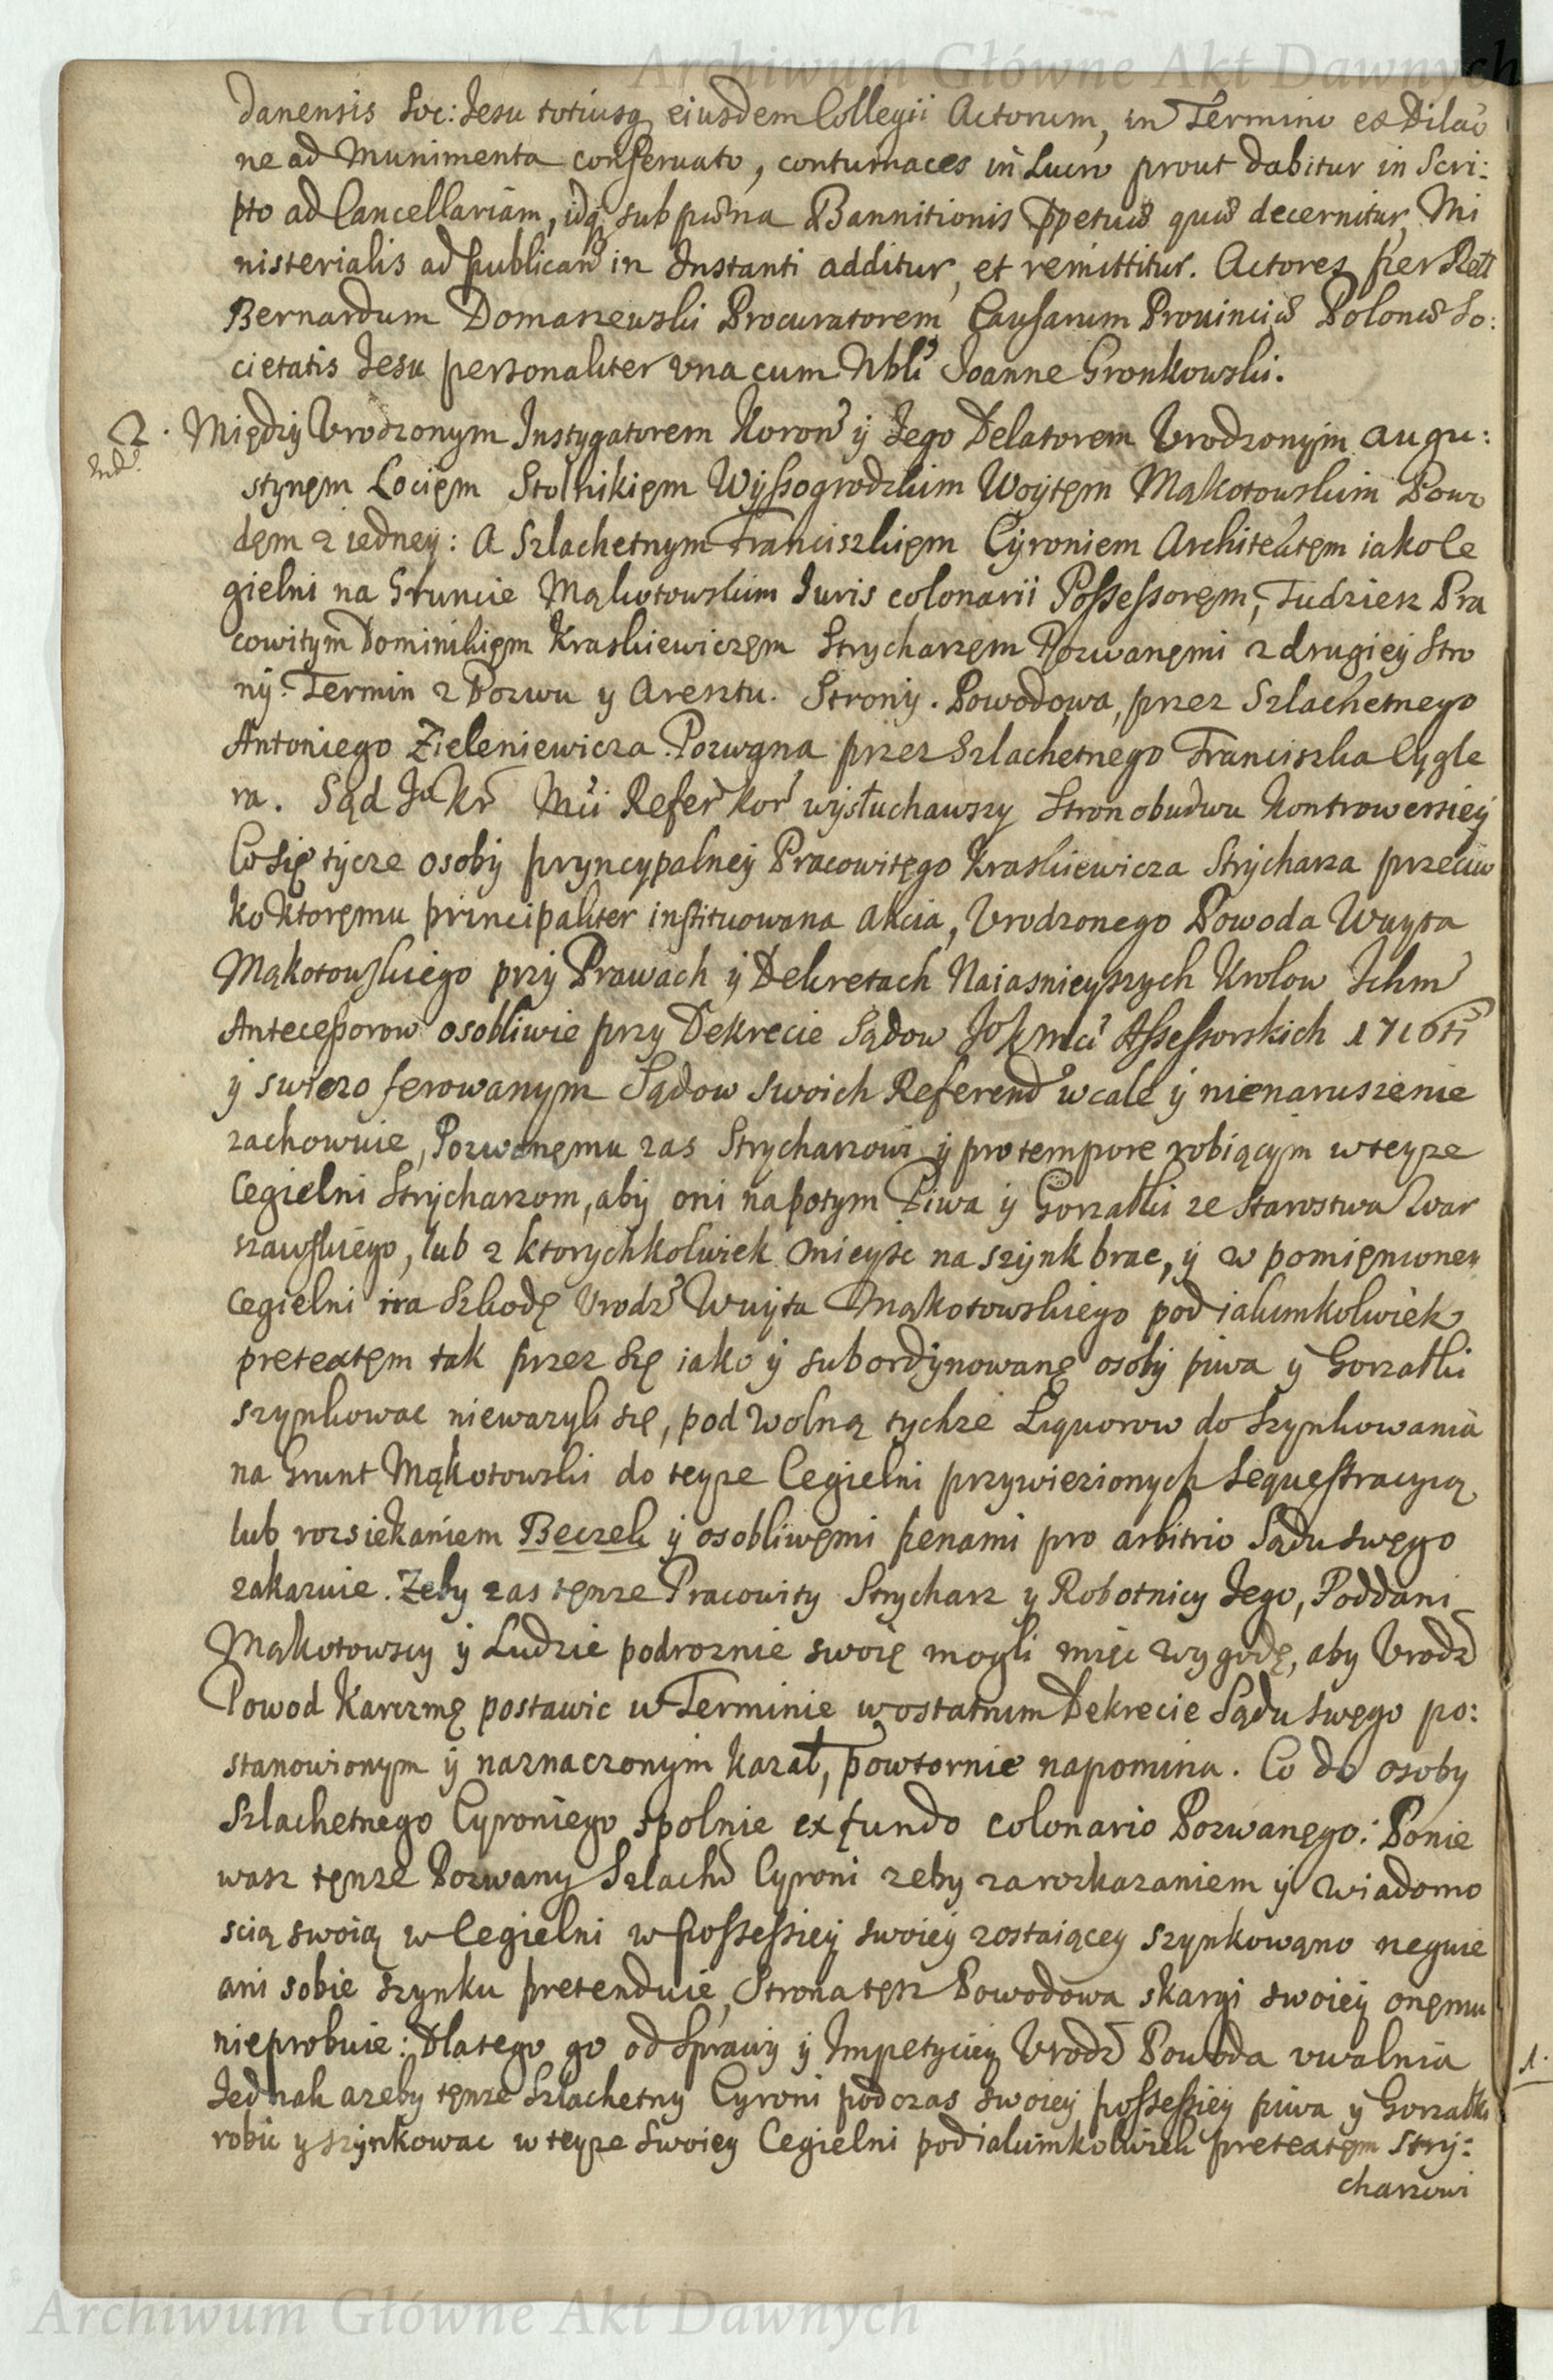 Archiwum Główne Akt Dawnych
danensis Soc: Jesu totiusq eiusdem Collegii Actorum, in Termino ex Dilao
ne ad Munimenta conseruato, contumaces in Lucro prout dabitur in Scri:
pto ad Cancellariam, idq sub pœna Bannitionis ppetuæ quæ decernitur, Mi
nisterialis ad publicand in Instanti additur, et remittitur. Actores per Rell
Bernardum Domaszewski Procuratorem Causarum Prouinciæ Polonæ So:
cietatis Jesu personaliter vna cum Nbli Joanne Gronkowski.
2. Między Vrodzonym Instygatorem Koron y Jego Delatorem Vrodzonym Augu:
stynem Locięm Stolnikięm Wyssogrodzkim Woytęm Mąkotowskim Powo
dęm z iedney: A Szlachetnym Franciszkięm Cyroniem Architektęm iako Ce
gielni na Gruncie Mąkotowskim Iuris colonarii Possessoręm, Tudziesz Pra
cowitym Dominikięm Kraskiewiczęm Strycharzęm Pozwanęmi z drugiey Stro
ny. Termin z Pozwu y Aresztu. Strony. Powodowa, przez Szlachetnego
Antoniego Zieleniewicza. Pozwana przez Szlachetnego Franciszka Cygle
ra. Sąd JoKr Mci Refer Kor wysłuchawszy Stron obudwu Kontrowersiey
Co się tycze osoby pryncypalney Pracowitęgo Kraskiewicza Strycharza przeciw
ko ktoręmu principaliter instituowana Akcia, Vrodzonego Powoda Wuyta
Mąkotowskiego przy Prawach y Dekretach Naiasnieyszych Krolow Ichm
Antecessorow osobliwie przy Dekrecie Sądow JoKMci Assessorskich 1716ti
y swiezo ferowanym Sądow swoich Referend wcale y nienaruszenie
zachowuie, Pozwanęmu zas Strycharzowi y pro tempore robiącym w teyze
Cegielni Strycharzom, aby oni napotym Piwa y Gorzałki ze Starostwa War
szawskiego, lub z ktorychkolwiek mieysc na szynk brac, y w pomięnioney
Cegielni na Szkodę Vrodz Wuyta Mąkotowskiego pod iakimkolwiek
pretextęm tak przez się iako y subordynowanę osoby piwa y Gorzałki
szynkowac niewazyli się, pod wolną tychze Liquorow do szynkowania
na Grunt Mąkotowski do teyze Cegielni przywiezionych Sequestracyią
lub rozsiekaniem Beczek y osobliwęmi pęnami pro arbitrio Sądu swęgo
zakazuie. Zeby zas tęnze Pracowity Strycharz y Robotnicy Jego, Poddani
Mąkotowscy y Ludzie podroznie swoię mogli mięc wygodę, aby Vrodz
Powod Karczmę postawic w Terminie w ostatnim Dekrecie Sądu swęgo po:
stanowionym y naznaczonym kazał, powtornie napomina. Co do osoby
Szlachetnego Cyroniego spolnie ex fundo colonario Pozwanęgo: Ponie
wasz tęnze Pozwany Szlach Cyroni zeby za rozkazaniem y wiadomo
scią swoią w Cegielni w possessiey swoiey zostaiącey szynkowąno neguie
ani sobie szynku pretenduie, Strona tęsz Powodowa skargi swoiey onęmu
nieprobuie: Dlatego go od Sprawy y Impetyciey Vrodz Powoda vwalnia
Jednak azeby tęnze Szlachetny Cyroni podczas swoiey possessiey piwa y Gorzałki
robic y szynkowac w teyze swoiey Cegielni pod iakimkolwiek pretextęm Stry:
charzowi
1.
Archiwum Główne Akt Dawnych